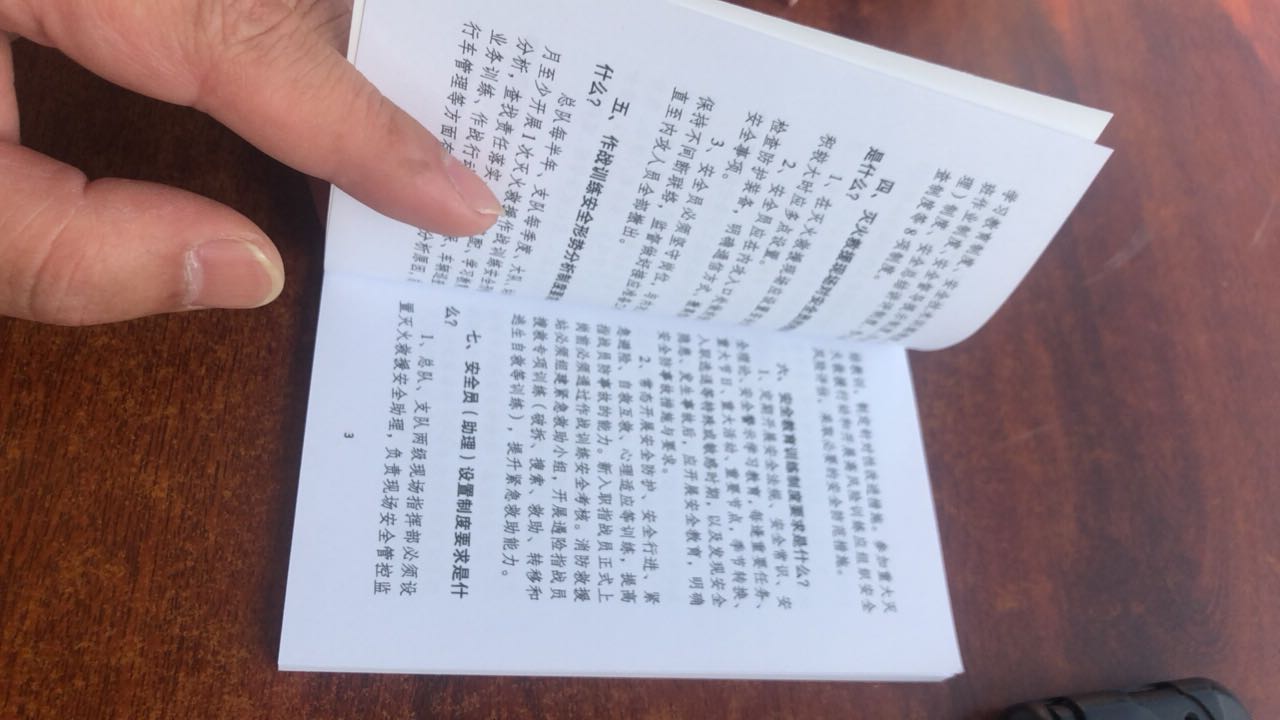 查制度等 8 项制度。
四、灭火救援现场
是什么?
1、在灭火救援现场
救援大时应多点设置。
2、安全员应在内攻人口
检查防护装备,明确通信方式、
安全事项。
3、安全员必须坚守岗位,
保持不间断联络,
直至内攻人员全部撤出。
五、作战训练安全形势分析制度
什么?
总队每半年、支队每季度、大队、
月至少开展1次灭火救援作战训练安全
分析,查找责任落实
业务训练、作战行动
行车管理等方面存
训教训,制定针对性改进措施。参加重大灭
火救援行动和开展高风险训练应组织安全
风险评估,采取必要的安全防范措施。
六、安全教育训练制度要求是什么?
1、定期开展安全法规、安全常识、安
全理论、安全警示学习教育,每逢重要任务、
重大节日、重大活动、重要节点,季节转换、
人员选退等特殊或敏感时期,以及发现安全
隐患、发生事故后,应开展安全教育,明确
安全防事故措施与要求。
2、常态开展安全防护、安全行进、紧
急避险、自救互救、心理适应等训练,提高
指战员防事故的能力。新入职指战员正式上
岗前必须通过作战训练安全考核。消防救援
站必须组建紧急救助小组,开展遇险指战员
搜救专项训练(破拆、搜索、救助、转移和
逃生自救等训练),提升紧急救助能力。
七、安全员(助理)设置制度要求是什
么?
1、总队、支队两级现场指挥部必须设
置灭火救援安全助理,负责现场安全管控监
3